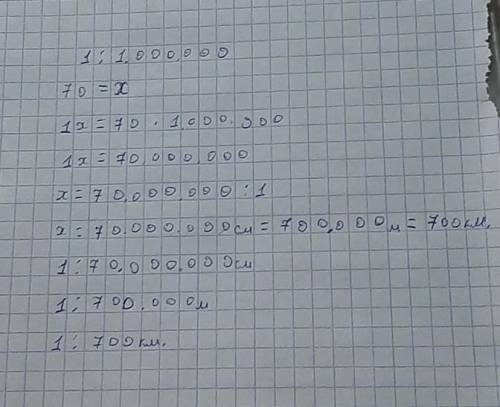 1 : 1.000.000
70 = x
1x = 70 · 1.000.000
1x = 70.000.000
x = 70.000.000 : 1
x = 70.000.000см = 700.000м = 700км.
1 : 70.000.000см
1 : 700.000м
1 : 700км.